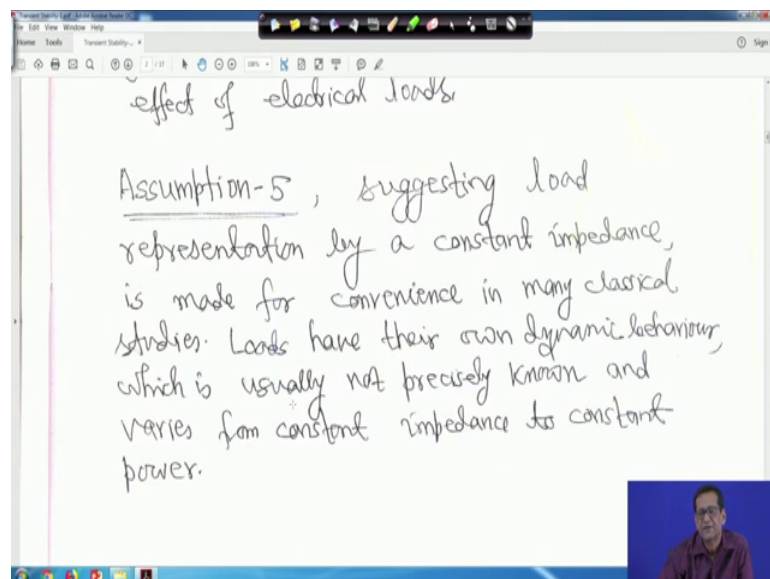 Transient Stability-I.pdf - Adobe Acrobat Reader DC
File Edit View Window Help
Home Tools Transient Stability-... ×
Sign
2 / 17
effect of electrical loads.
Assumption-5, suggesting load
representation by a constant impedance,
is made for convenience in many classical
studies. Loads have their own dynamic behaviour,
which is usually not precisely known and
varies from constant impedance to constant
power.